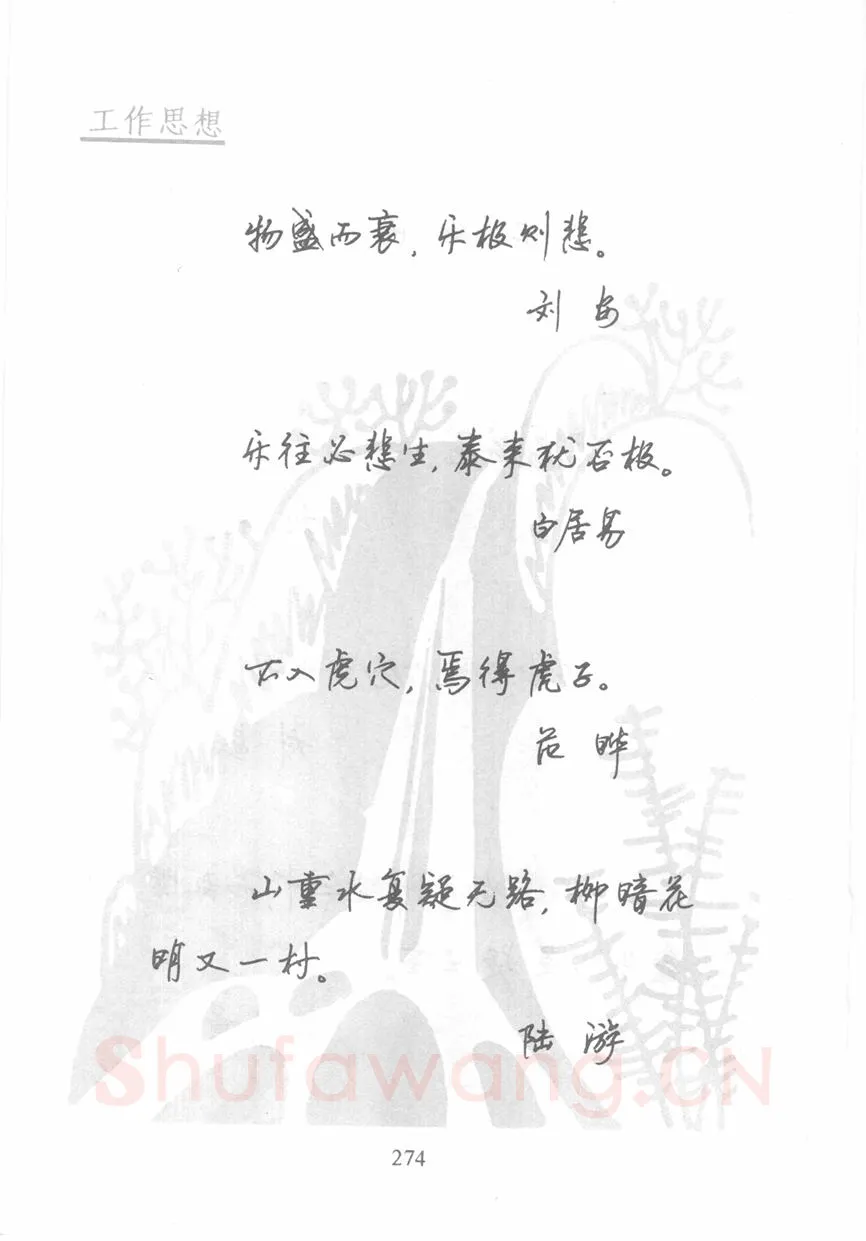 工作思想
物盛而衰，乐极则悲。
刘安
乐往必悲生，泰来犹否极。
白居易
不入虎穴，焉得虎子。
范晔
山重水复疑无路，柳暗花
明又一村。
陆游
Shufawang.CN
274